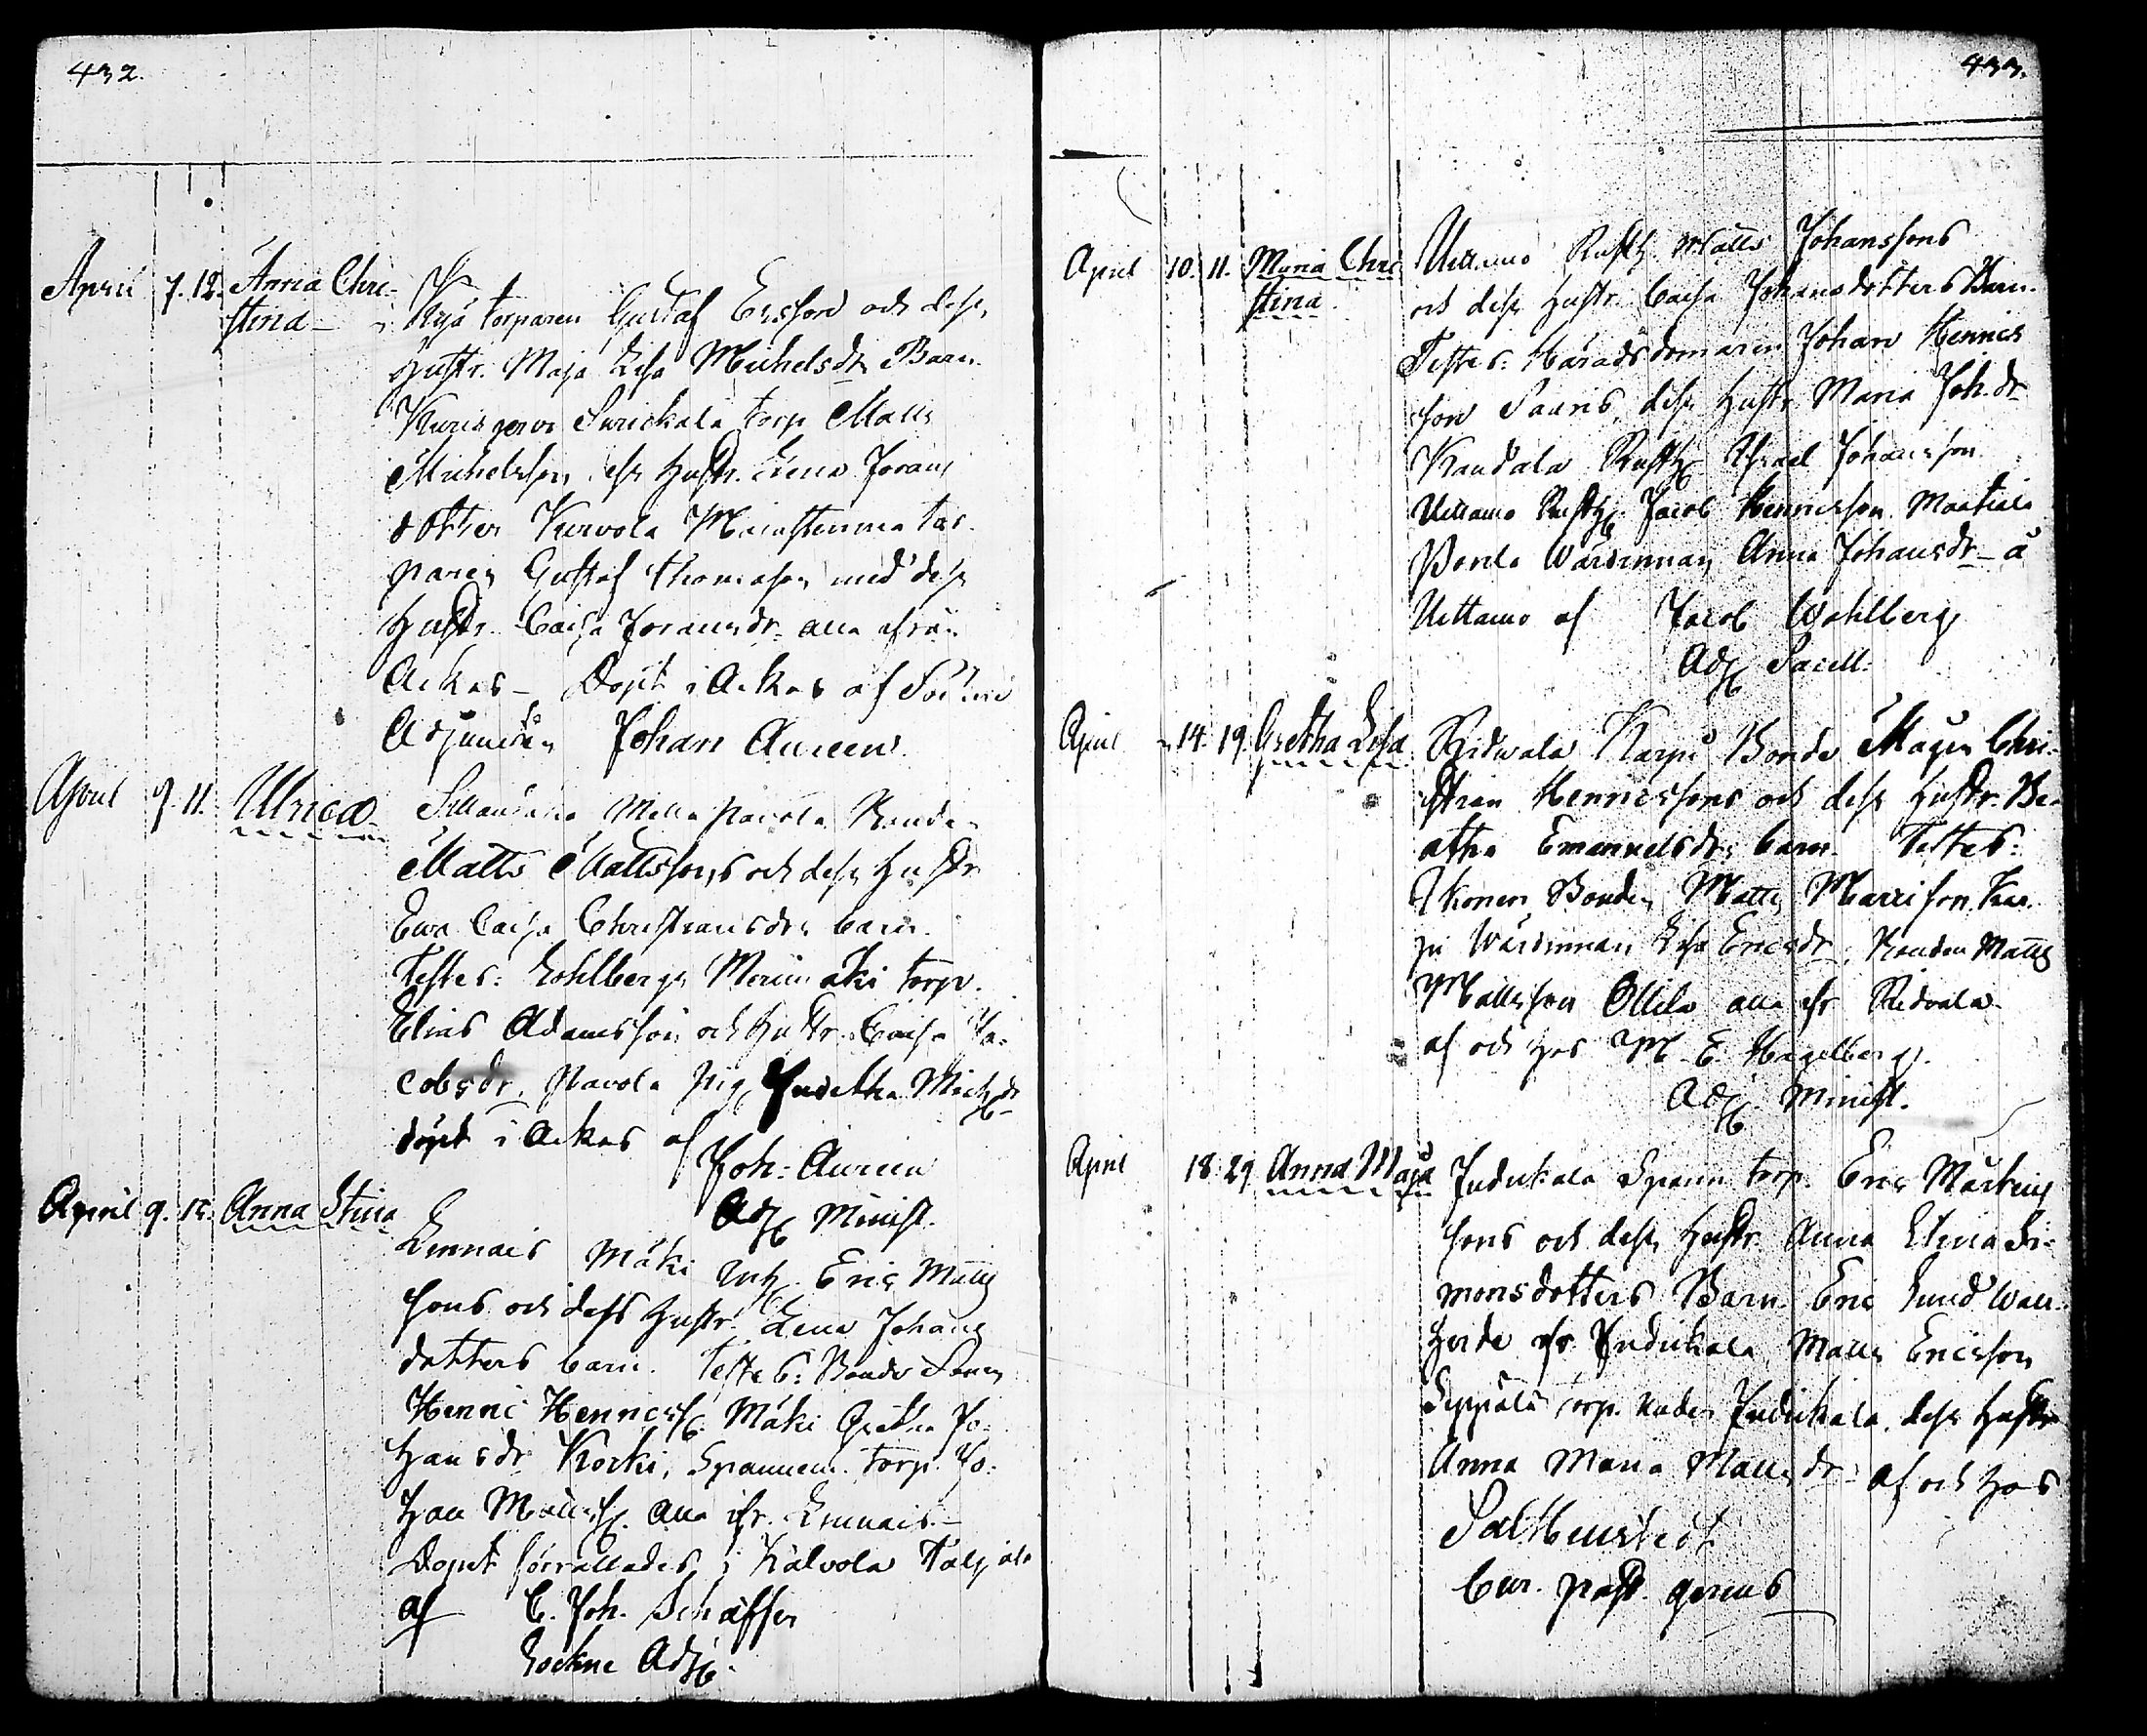 432.
April 7. 12. Anna Chri-
stina - Nyä torparen Gustaf Ersson och dess
Hustr. Maja Lisa Michelsdr Barn.
torp Matts
Michelsson, dess Hustr. Lena Johans
dotter Kurvola tor-
paren Gustaf Thomasson med dess
Hustr. Caisa Johansdr alla ifrån
Ackas - Döpt i Ackas af Sockne
Adjuncten Johan Aureen.
April 9. 11. Ulrica Pavola Bonden
Matts Mattssons och dess Hustr
Ewa Caisa Christiansdrs barn.
Testes: torp.
Elias Adamsson och Hustr. Caisa Ja-
cobsdr. Pavola Pig. Mich.dr
döpt i Ackas af
Joh: Aureen
Adj. Minist.
April 9. 15. Anna Stina
Lennais Mäki Eric Matts
sons och dess Hustr. Lena Johans
dotters barn. Testes: Bonde Sonen
Henric Henricss. Mäki Gretha Jo-
hansdr Korki, torp. Jo-
han Mattss. alla ifr. Lennais -
Dopet förrättades i Kalvola
af C. Joh. Schäffer
Sockne Adj.
433.
April 10. 11. Maria Chri Uittamo Rusth. Matts Johanssons
stina. och dess Hustr. Caisa Johansdotters Barn.
Testes: Häradsdomaren Johan Henrics
son Sauris, dess Hustr. Maria Joh.dr
Kandala Rusth. Israel Johansson
Uittamo Rusth. Jacob Henricsson
Wärdinnan Anna Johansdr - å
Uittamo af Jacob Wahlberg
Adj. Sacell.
April 14. 19. Gretha Lisa Ridvala Karpi Bonde Mågen Chri-
stian Henricssons och dess Hustr. Be-
atha Emanuelsdrs barn. Testes:
Ikonen Bonden Matts Kar-
pi Wärdinnan Lisa Ericsdr, Bonden Matts
Mattsson Ollila alla ifr Ridvala
af och hos M. E. Hagelberg.
Adj. Minist.
April 18. 29. Anna Maja Indickala torp. Eric Mårtens
sons och dess Hustr. Anna Stina Si-
monsdotters Barn. Eric Lund Wall-
herde ifr Indickala, Matts Ericsson
Seppälä torp. under Indickala, dess Hustr
Anna Maria Mattsdr - af och hos
Sal
Cur. past. gerens